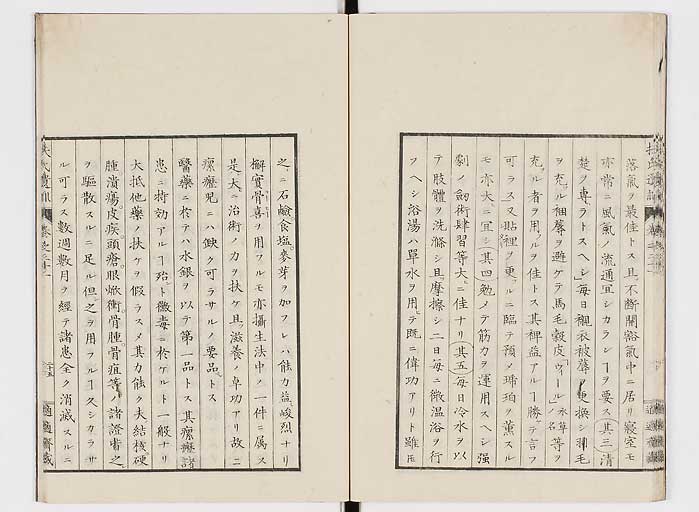 落氣ヲ最佳トス且不斷開豁氣中ニ居リ寢室モ
亦常ニ風氣ノ流通宜シカラシヿヲ要ス其三清
楚ヲ專ラトスヘシ毎日襯衣被蓐ヲ更換シ羽毛
ヲ充ツル裀蓐ヲ避ケテ馬毛穀皮「ヴィール」水草ノ名等ヲ
充ツル者ヲ用フルヲ佳トス其裨益アルヿ勝テ言フ
可ラス又貼裡ヲ更フルニ臨テ預メ琥珀ヲ薫スル
モ亦大ニ宜シ其四勉メテ筋力ヲ運用スヘシ强
劇ノ劔術肆習等大ニ佳ナリ其五毎日冷水ヲ以
テ肢體ヲ洗滌シ且摩擦シ二日毎ニ微温浴ヲ行
フヘシ浴湯ハ單水ヲ用テ既ニ偉功アリト雖𪜈
之ニ石鹼食塩麥芽ヲ加フレハ能力益峻烈ナリ
檞實骨喜ヲ用フルモ亦攝生法中ノ一件ニ属ス
是大ニ治術ノ力ヲ扶ケ且滋養ノ卓功アリ故ニ
瘰癧兒ニハ缺ク可ラサルノ要品トス
醫藥ニ於テハ水銀ヲ以テ第一品トス其瘰癧諸
患ニ特効アルヿ殆ト黴毒ニ於ケルト一般ナリ
大抵他藥ノ扶ケヲ假ラスメ其力能ク夫結核硬
腫潰瘍皮疾頭瘡眼焮衝骨腫骨疽等ノ諸證ヲ之
ヲ驅散スルニ足ル但之ヲ用フルヿ久シカラサ
ル可ラス數週數月ヲ經テ諸患全ク消滅スルニ